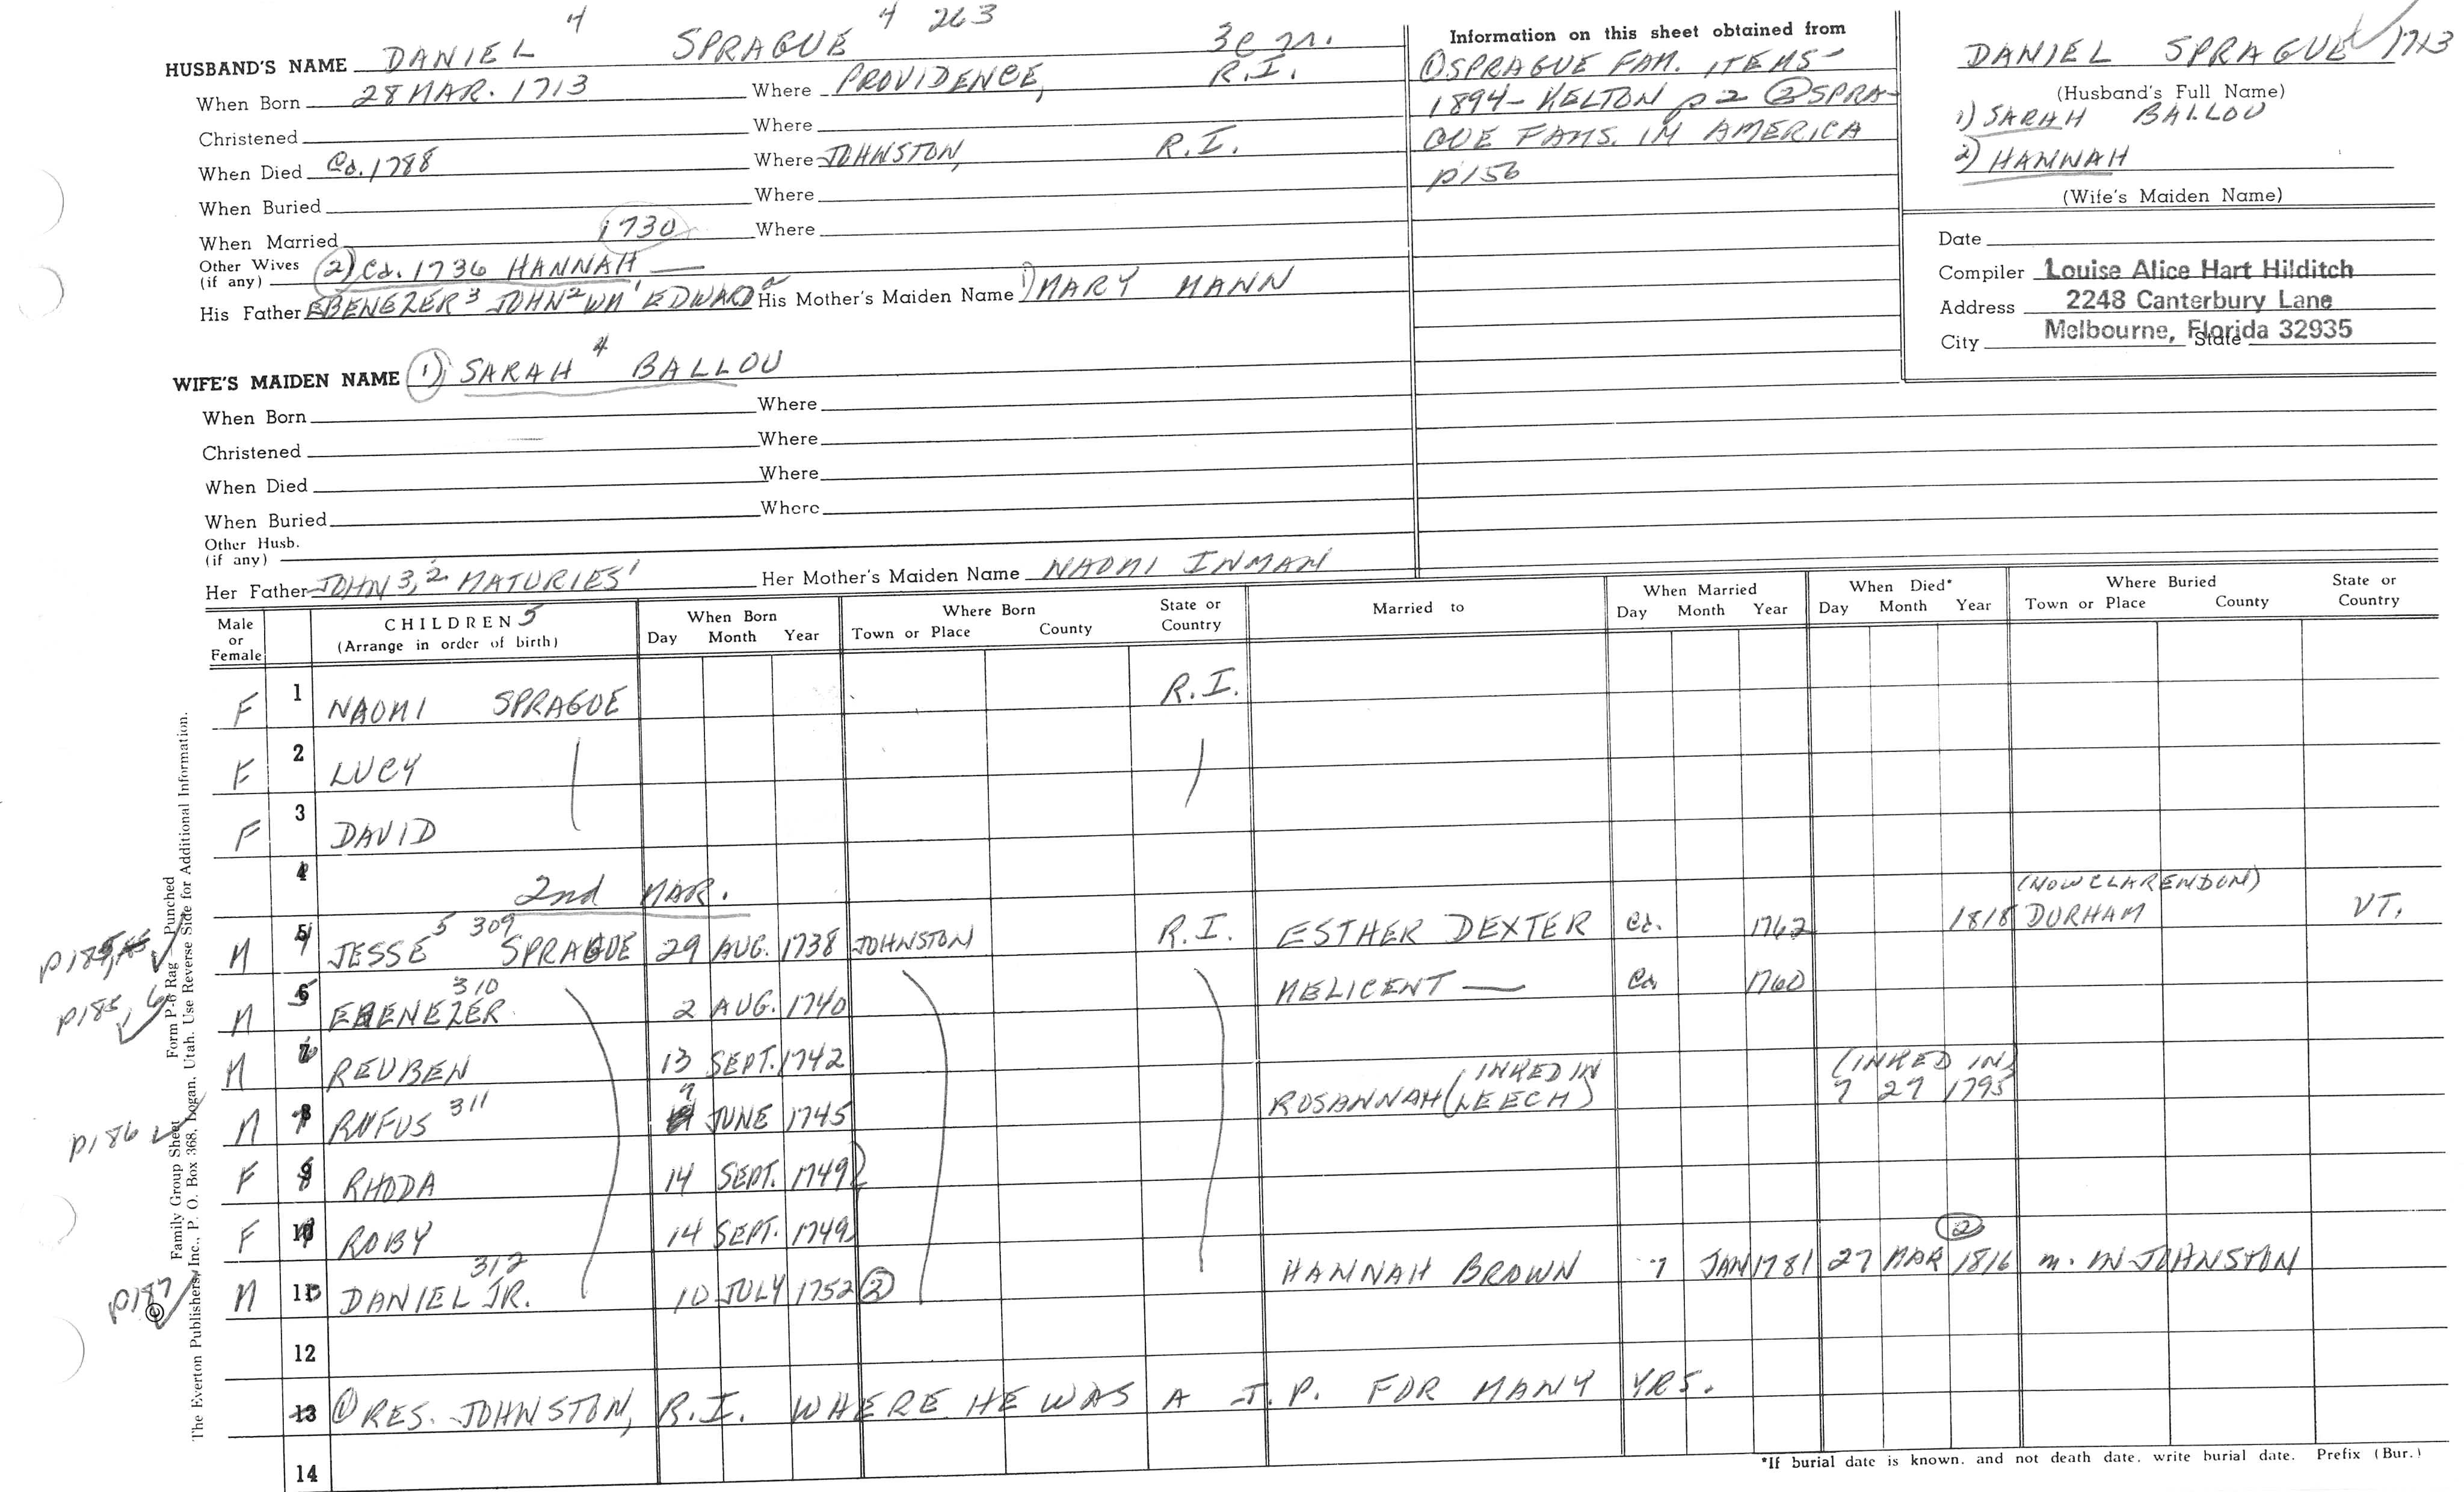 HUSBAND'S NAME DANIEL 4 SPRAGUE 4 263
When Born 28 MAR. 1713 Where PROVIDENCE, R.I.
Christened Where
When Died Ca. 1788 Where JOHNSTON, R.I.
When Buried Where
When Married 1730 Where
Other Wives (if any) (2) Ca. 1736 HANNAH —
His Father EBENEZER 3 JOHN 2 WM 1 EDWARD 0 His Mother's Maiden Name 1) MARY MANN
Information on this sheet obtained from
① SPRAGUE FAM. ITEMS-
1894- KELTON p 2 ② SPRA-
GUE FAMS. IN AMERICA
p156
DANIEL SPRAGUE 1713
(Husband's Full Name)
1) SARAH BALLOU
2) HANNAH
(Wife's Maiden Name)
Date
Compiler Louise Alice Hart Hilditch
Address 2248 Canterbury Lane
City Melbourne, Florida 32935 State
WIFE'S MAIDEN NAME (1) SARAH 4 BALLOU
When Born Where
Christened Where
When Died Where
When Buried Where
Other Husb. (if any)
Her Father JOHN 3, 2 MATURIES 1 Her Mother's Maiden Name NAOMI INMAN
Male or Female CHILDREN 5 (Arrange in order of birth) When Born Day Month Year Where Born Town or Place County State or Country Married to When Married Day Month Year When Died* Day Month Year Where Buried Town or Place County State or Country
F 1 NAOMI SPRAGUE R.I.
F 2 LUCY
F 3 DAVID
4 2nd MAR.
(NOW CLARENDON)
M 5 JESSE 5 309 SPRAGUE 29 AUG. 1738 JOHNSTON R.I. ESTHER DEXTER Ca. 1762 1818 DURHAM VT.
p185, 6 M 6 EBENEZER 310 2 AUG. 1740 MELICENT — Ca. 1760
M 7 REUBEN 13 SEPT. 1742
p186 M 8 RUFUS 311 9 JUNE 1745 ROSANNAH (LEECH) INKED IN (INKED IN) 7 27 1795
F 9 RHODA 14 SEPT. 1749
F 10 ROBY 14 SEPT. 1749
p187 M 11 DANIEL JR. 312 10 JULY 1752 ② HANNAH BROWN 7 JAN 1781 27 MAR 1816 ② m. IN JOHNSTON
12
13 ① RES. JOHNSTON, R.I. WHERE HE WAS A J.P. FOR MANY YRS.
14
*If burial date is known, and not death date, write burial date. Prefix (Bur.)
Family Group Sheet Form P-6 Rag — Punched
© The Everton Publishers, Inc., P. O. Box 368, Logan, Utah. Use Reverse Side for Additional Information.